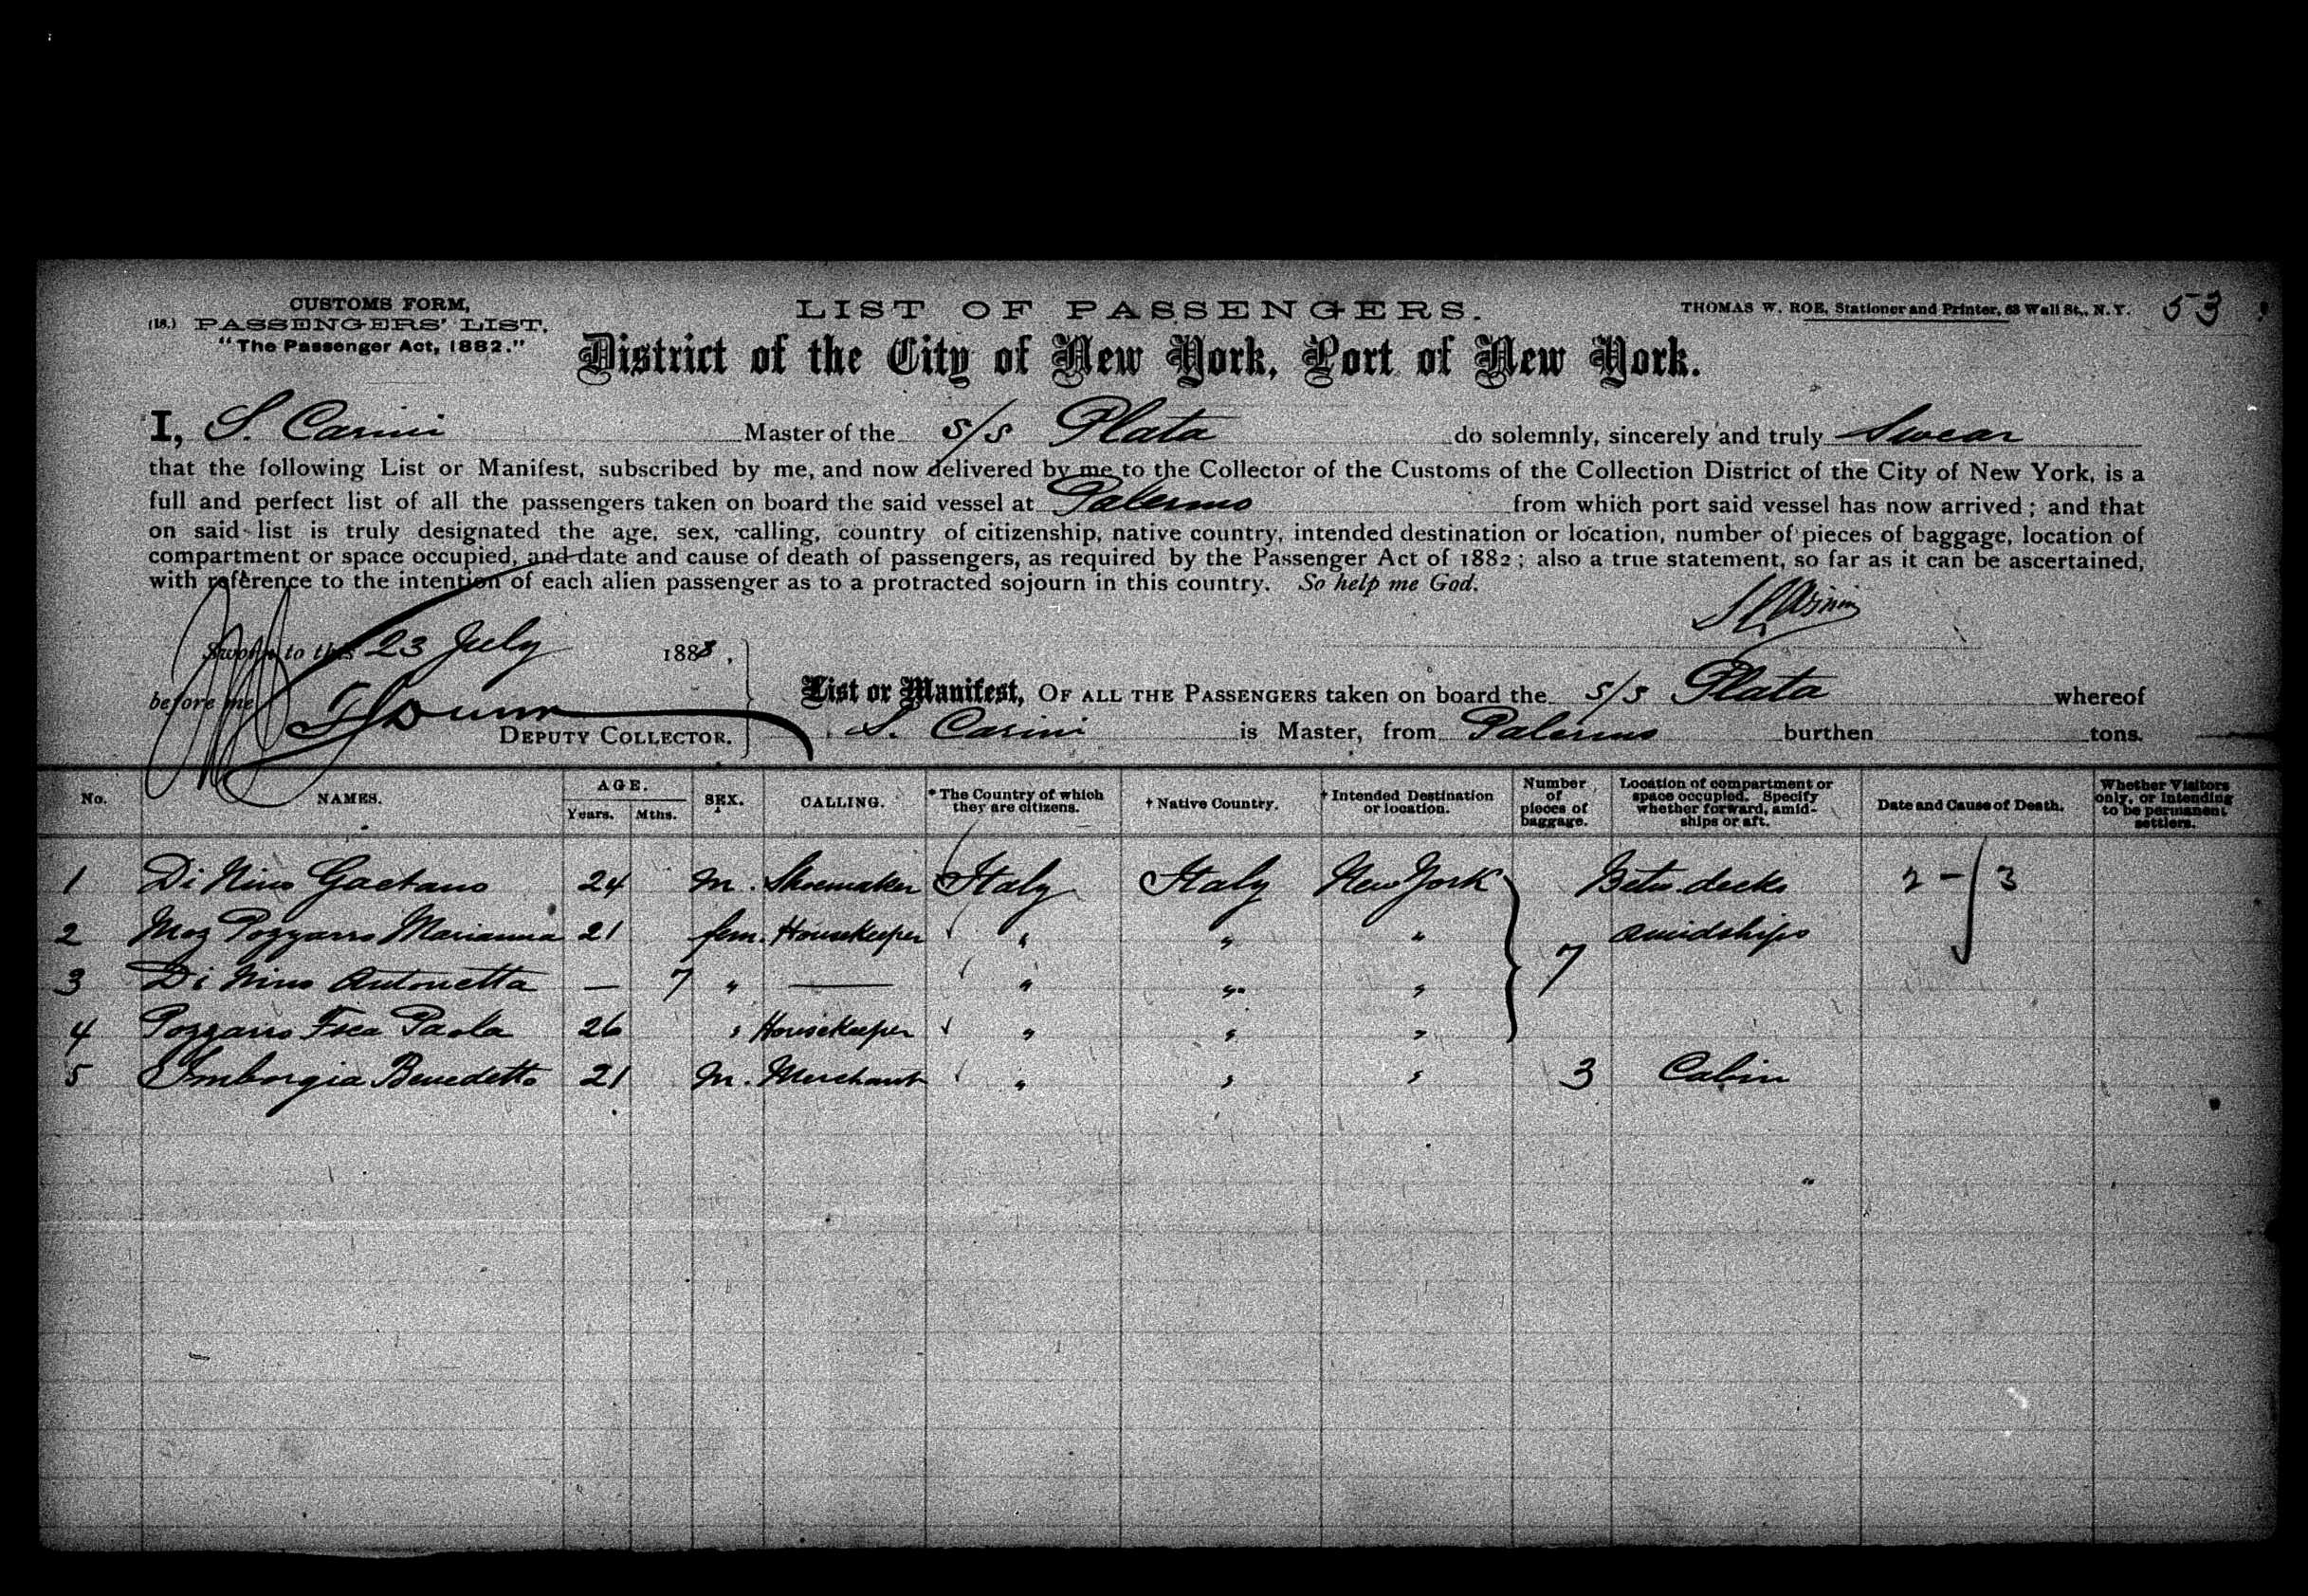 CUSTOMS FORM,
(18.) PASSENGERS' LIST.
"The Passenger Act, 1882."
LIST OF PASSENGERS.
THOMAS W. ROE, Stationer and Printer, 63 Wall St., N. Y.
53
District of the City of New York, Port of New York.
I, S. Carini Master of the s/s Plata do solemnly, sincerely and truly Swear
that the following List or Manifest, subscribed by me, and now delivered by me to the Collector of the Customs of the Collection District of the City of New York, is a
full and perfect list of all the passengers taken on board the said vessel at Palermo from which port said vessel has now arrived; and that
on said list is truly designated the age, sex, calling, country of citizenship, native country, intended destination or location, number of pieces of baggage, location of
compartment or space occupied, and date and cause of death of passengers, as required by the Passenger Act of 1882; also a true statement, so far as it can be ascertained,
with reference to the intention of each alien passenger as to a protracted sojourn in this country. So help me God.
S Carini
Sworn to this 23 July 1888,
before me
DEPUTY COLLECTOR.
List or Manifest, OF ALL THE PASSENGERS taken on board the s/s Plata whereof
S. Carini is Master, from Palermo burthen tons.
No. NAMES. AGE. Years. Mths. SEX. CALLING. * The Country of which they are citizens. † Native Country. † Intended Destination or location. Number of pieces of baggage. Location of compartment or space occupied. Specify whether forward, amidships or aft. Date and Cause of Death. Whether Visitors only, or intending to be permanent settlers.
1 Di Nino Gaetano 24 M. Shoemaker Italy Italy New York Betw. decks 2 - 3
2 Mog Pozzarro Marianna 21 fem. Housekeeper " " " amidships
3 Di Nino Antonetta — 7 " — " " " 7
4 Pozzarro Fsca Paola 26 " Housekeeper " " "
5 Imborgia Benedetto 21 M. Merchant " " " 3 Cabin